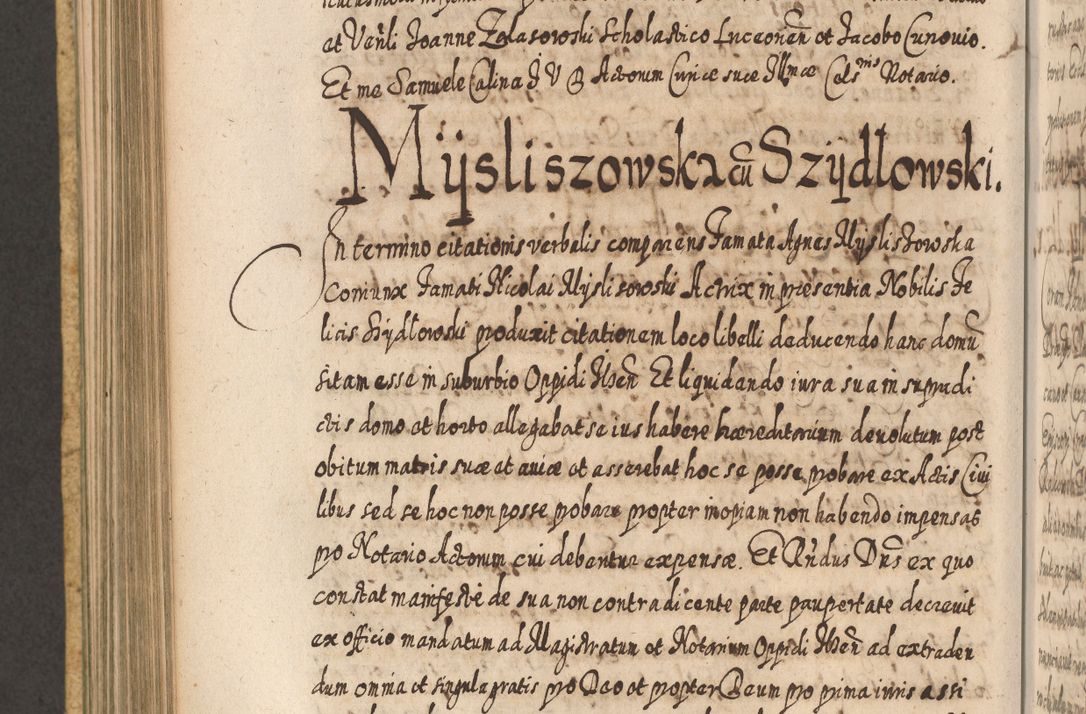 et Venli Joanne Zolasowski Scholastico Luceoneñ et Jacobo Cunovio.
Et me Samuele Calina J V D Actorum Curiæ suæ Illmæ Cels^nis Notario.
Mÿsliszowska cū Szÿdlowski.
In termino citationis verbalis comparens Famata Agnes Myslishowska
Coniunx Famati Nicolai Myslisowski Actrix in præsentia Nobilis Fe
licis Szydlowski produxit citationem loco libelli deducendo hanc domū
sitam esse in suburbio Oppidi Ilzeñ Et liquidando iura sua in supradi
ctis domo et horto allegabat se ius habere hæreditarium devolutum post
obitum matris suæ et aviæ et asserebat hoc se posse probare ex Actis Civi
libus sed se hoc non posse probare propter inopiam non habendo impensas
pro Notario Actorum cui debentur expensæ. Et Rndus Dns ex quo
constat manifestè de sua non contradicente parte paupertate decrevit
ex officio mandatum ad Magistratum et Notarium Oppidi Ilzeñ ad extraden
dum omnia et singula gratis pro Deo et propter Deum pro prima iuris assi